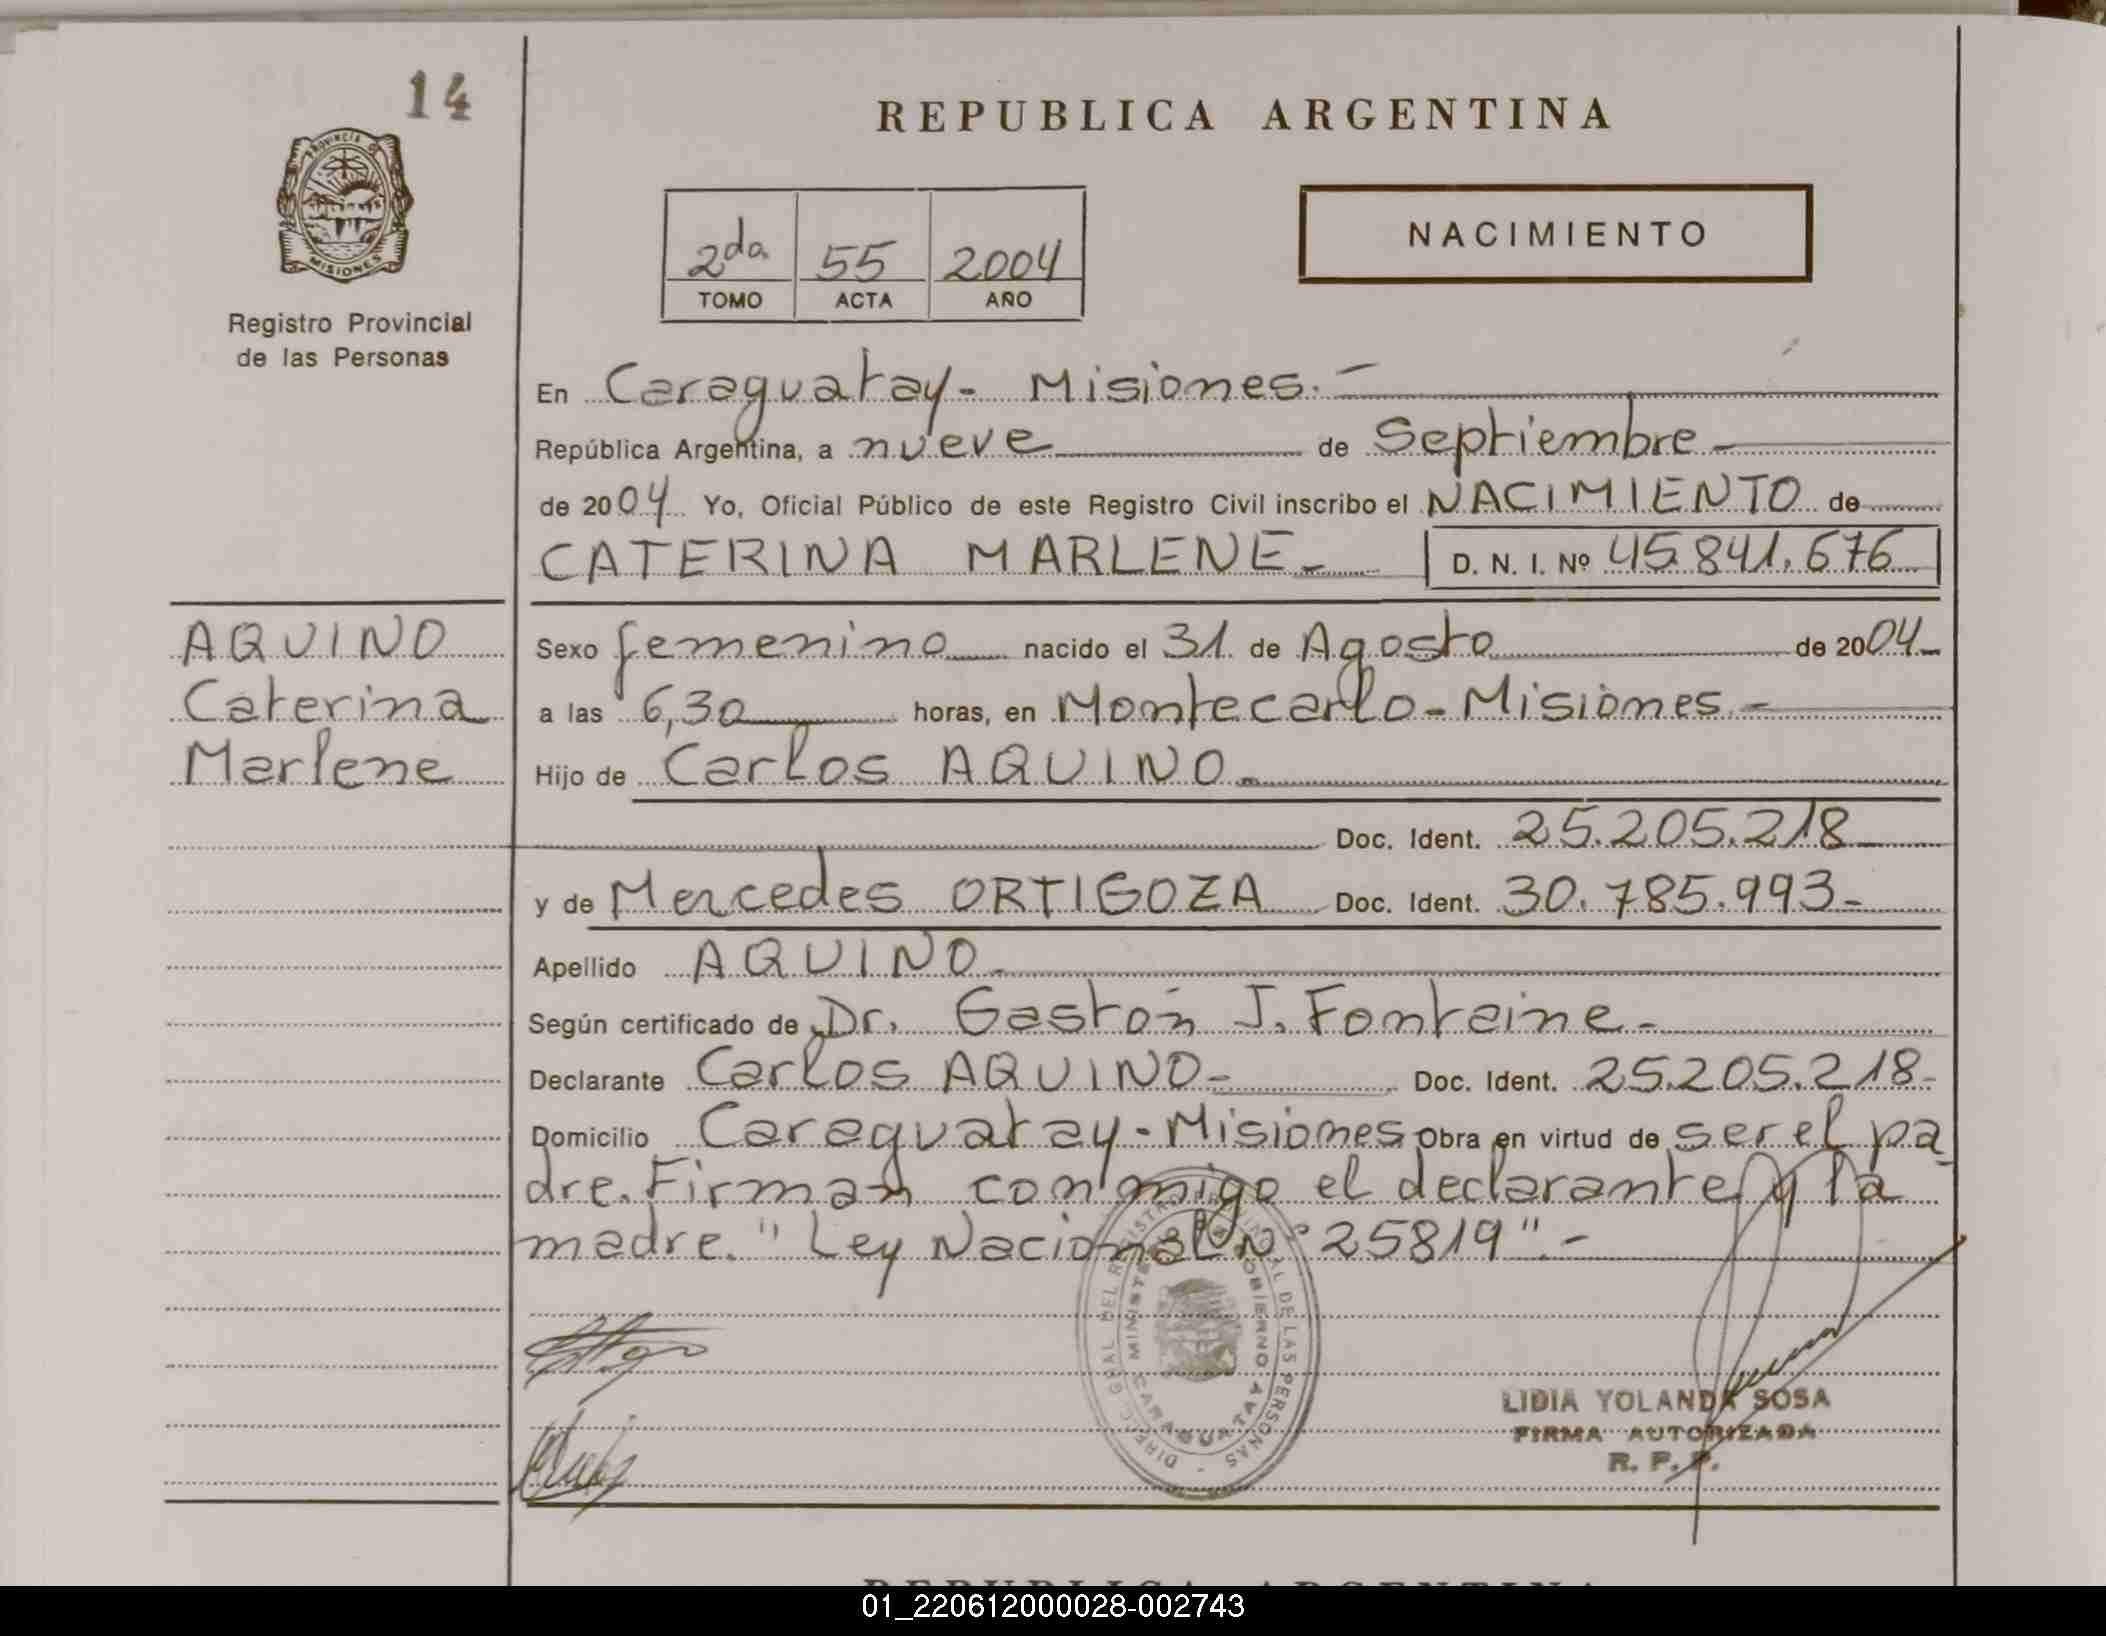 14
REPUBLICA ARGENTINA
PROVINCIA DE
MISIONES
Registro Provincial
de las Personas
2da 55 2004
TOMO ACTA AÑO
NACIMIENTO
En Caraguatay - Misiones.-
República Argentina, a nueve de Septiembre -
de 2004 Yo, Oficial Público de este Registro Civil inscribo el NACIMIENTO de
CATERINA MARLENE - D. N. I. Nº 45.841.676
AQUINO
Caterina
Marlene
Sexo femenino nacido el 31 de Agosto de 2004-
a las 6,30 horas, en Montecarlo - Misiones -
Hijo de Carlos AQUINO.
Doc. Ident. 25.205.218
y de Mercedes ORTIGOZA Doc. Ident. 30.785.993-
Apellido AQUINO
Según certificado de Dr. Gastón J. Fontaine -
Declarante Carlos AQUINO - Doc. Ident. 25.205.218-
Domicilio Caraguatay - Misiones Obra en virtud de ser el pa
dre. Firman conmigo el declarante y la
madre. "Ley Nacional Nº 25819".-
DIREC. GRAL DEL REGISTRO PROVINCIAL DE LAS PERSONAS -
MINISTERIO DE GOBIERNO
CARAGUATAY
LIDIA YOLANDA SOSA
FIRMA AUTORIZADA
R. P. P.
REPUBLICA ARGENTINA
01_220612000028-002743